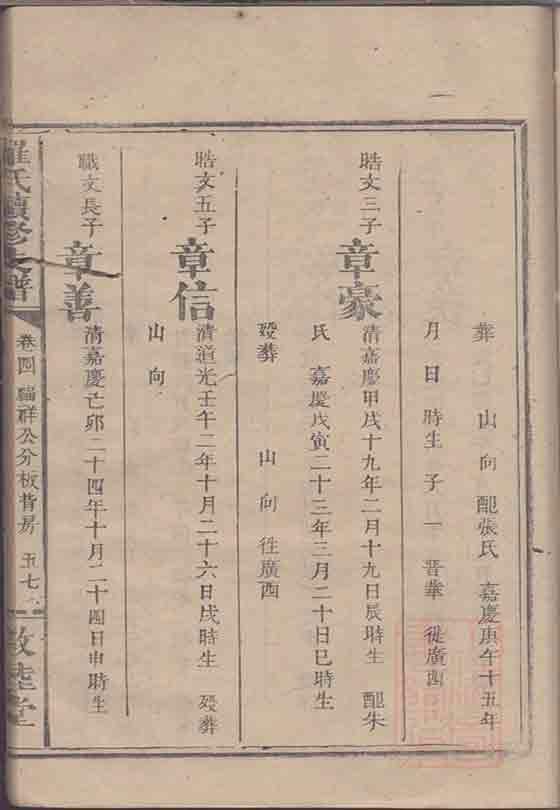 葬　山向　配張氏　嘉慶庚午十五年
月　日　時生　子一　晋華　徙廣西
晧文三子　章豪　清嘉慶甲戌十九年二月十九日辰時生　配朱
氏　嘉慶戊寅二十三年三月二十日巳時生
歿葬　山向　徃廣西
晧文五子　章信　清道光壬午二年十月二十六日戌時生　歿葬
山向
職文長子　章善　清嘉慶己卯二十四年十月二十四日申時生
羅氏續修支譜　卷四　福祥公分板背房　五七　敦睦堂